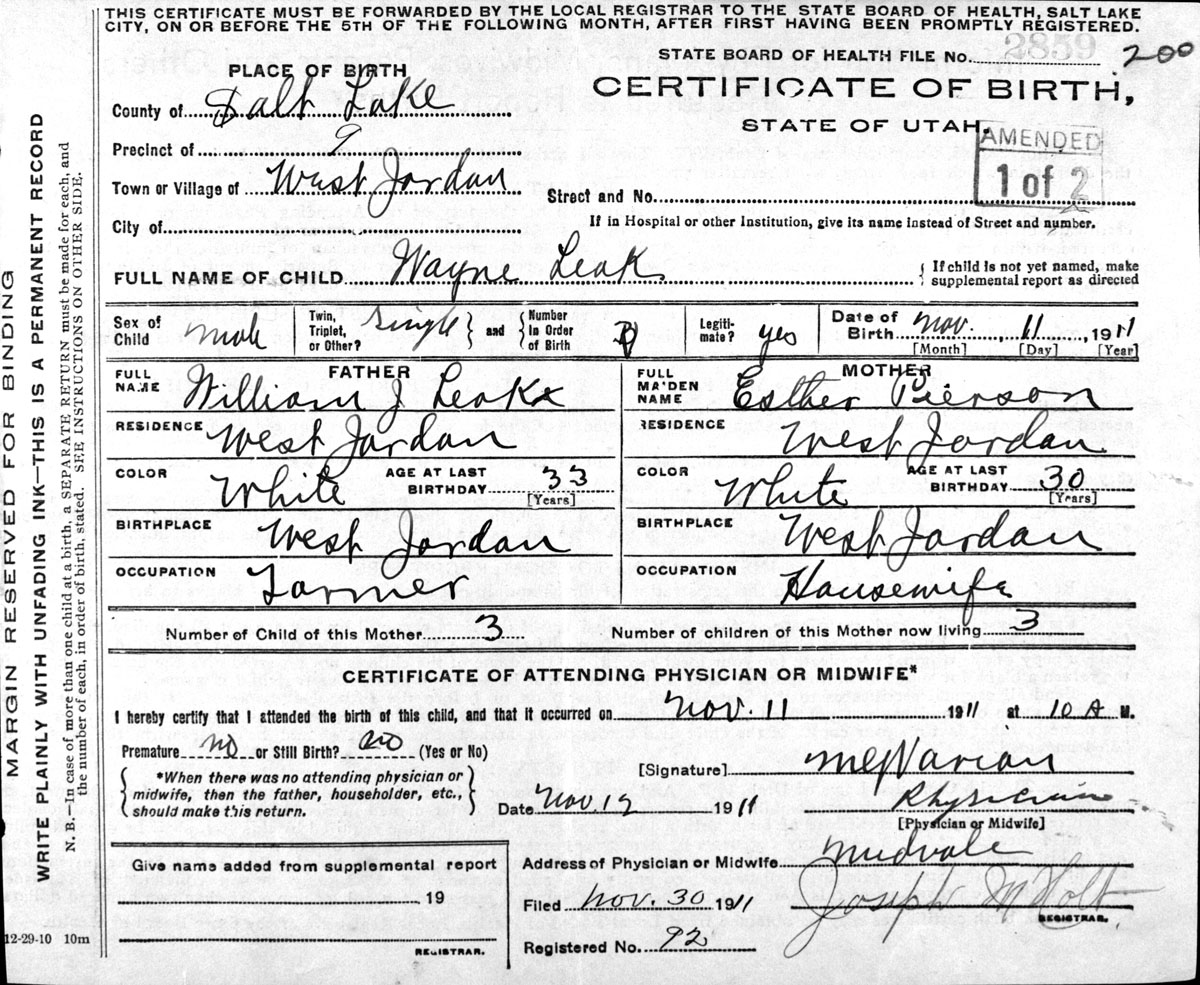 THIS CERTIFICATE MUST BE FORWARDED BY THE LOCAL REGISTRAR TO THE STATE BOARD OF HEALTH, SALT LAKE
CITY, ON OR BEFORE THE 5TH OF THE FOLLOWING MONTH, AFTER FIRST HAVING BEEN PROMPTLY REGISTERED.
STATE BOARD OF HEALTH FILE No. 2859 200
PLACE OF BIRTH
CERTIFICATE OF BIRTH,
STATE OF UTAH.
AMENDED
1 of 2
County of Salt Lake
Precinct of 9
Town or Village of West Jordan
Street and No.
City of
If in Hospital or other Institution, give its name instead of Street and number.
FULL NAME OF CHILD Wayne Leak
{ If child is not yet named, make
supplemental report as directed
Sex of Child Male
Twin, Triplet, or Other? Single } and { Number In Order of Birth
Legiti-mate? yes
Date of Birth Nov. 11, 1911
[Month] [Day] [Year]
FATHER
FULL NAME William J Leak
MOTHER
FULL MAIDEN NAME Esther Pierson
RESIDENCE West Jordan
RESIDENCE West Jordan
COLOR White AGE AT LAST BIRTHDAY 33 [Years]
COLOR White AGE AT LAST BIRTHDAY 30 [Years]
BIRTHPLACE West Jordan
BIRTHPLACE West Jordan
OCCUPATION Farmer
OCCUPATION Housewife
Number of Child of this Mother 3
Number of children of this Mother now living 3
CERTIFICATE OF ATTENDING PHYSICIAN OR MIDWIFE*
I hereby certify that I attended the birth of this child, and that it occurred on Nov. 11 1911 at 10 A M.
Premature no or Still Birth? no (Yes or No)
{ *When there was no attending physician or
midwife, then the father, householder, etc.,
should make this return. }
[Signature] Varian
Date Nov. 12 1911 Physician
[Physician or Midwife]
Give name added from supplemental report
19
REGISTRAR.
Address of Physician or Midwife Midvale
Filed Nov. 30 1911 Joseph M Holt
REGISTRAR.
Registered No. 92
12-29-10 10m
MARGIN RESERVED FOR BINDING
WRITE PLAINLY WITH UNFADING INK—THIS IS A PERMANENT RECORD
N. B.—In case of more than one child at a birth, a SEPARATE RETURN must be made for each, and
the number of each, in order of birth, stated. SEE INSTRUCTIONS ON OTHER SIDE.